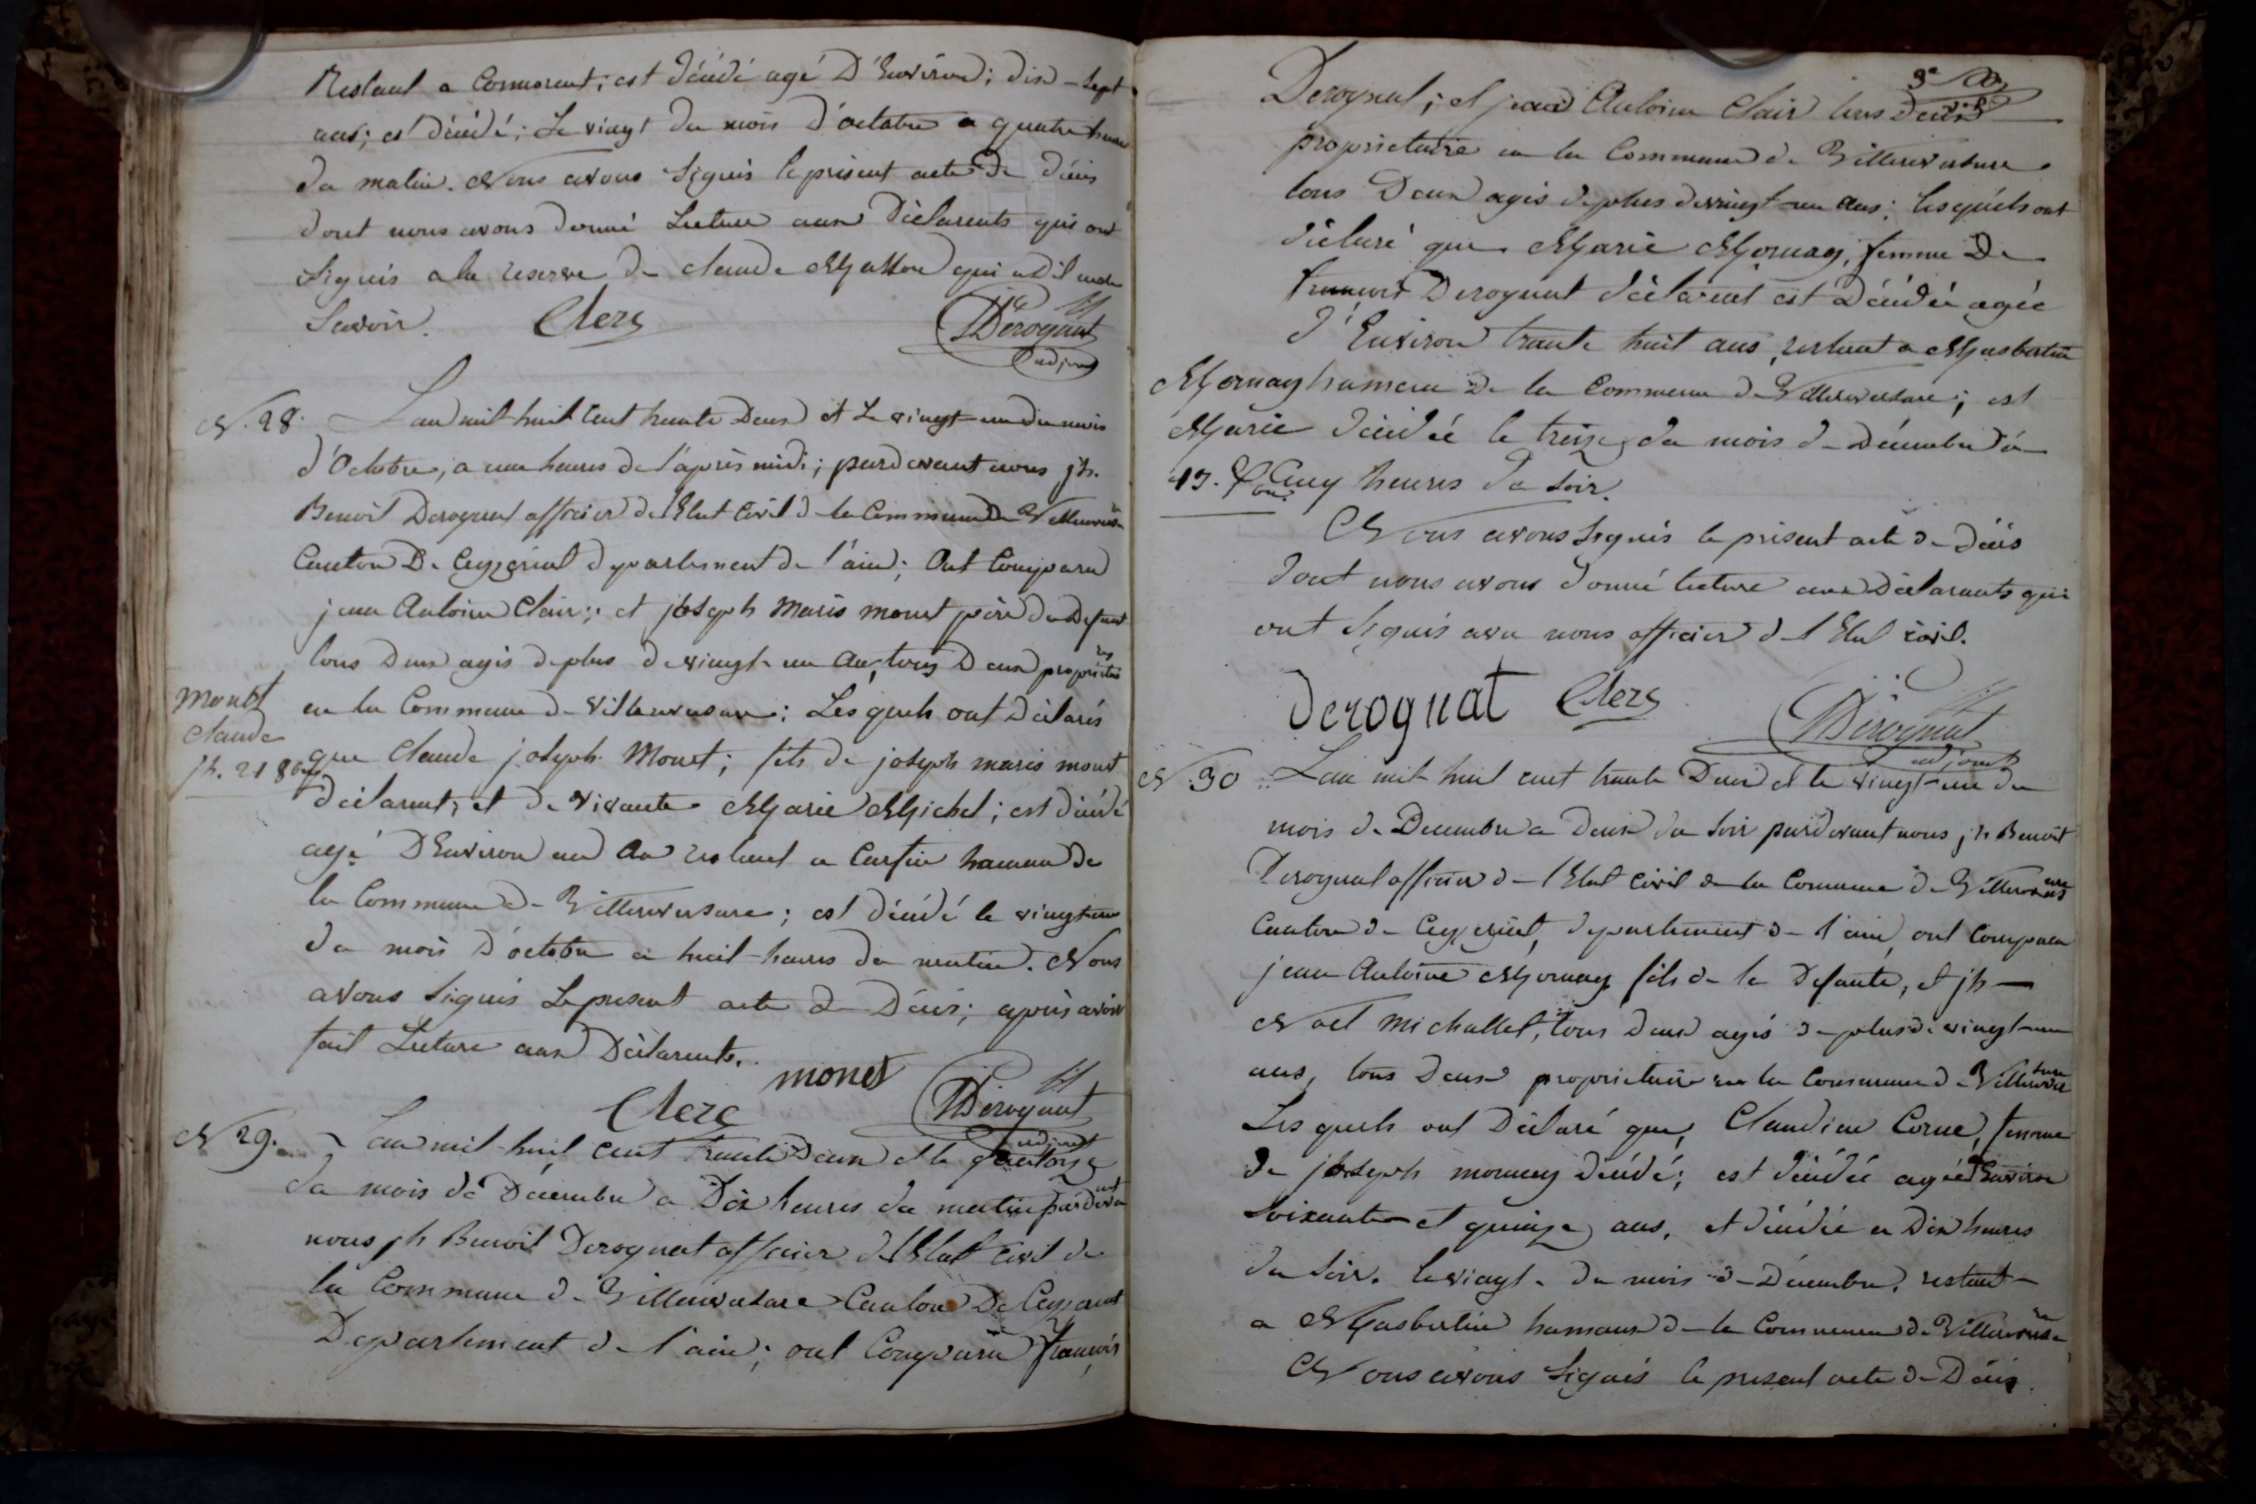 Restant a Cormorent; est décédé agé D'Environ; dix-sept
ans; est décédé; Le vingt du mois d'octobre a quatre heures
du matin. Nous avons signés le présent acte de décès
dont nous avons donné Lecture aux Déclarents qui ont
signés a la reserve de claude Masson qui a dit ne le
savoir. Clerc Derognat
adjoint
N. 28. L'an mil huit cent trente Deux et Le vingt un du mois
d'Octobre, a une heures de l'après midi; pardevant nous jh.
Benoit Derognat officier de l'Etat Civil de la Commune De Villereversure
Canton De Ceyzeriat departement de l'ain; Ont Comparu
jean Antoine Clair; et joseph marie monet père du Defunt
tous Deux agés de plus de vingt un An, tous Deux proprietaires
en la Commune de Villereversure: Lesquels ont Déclarés
Monet
Claude
jh. 21 8bre
que Claude joseph Monet; fils de joseph marie monet
déclarent, et de vivante Marie Michel; est décédé
agé D'Environ un An restant a Curtin hameau de
la Commune de Villereversure; est décédé le vingt un
du mois D'octobre a huit heures du matin. Nous
avons signés Le present acte de Décès; après avoir
fait Lecture aux Déclarents.
Clerc monet Derognat
adjoint
N 29. L'an mil-huit cent trente Deux et le quatorze
du mois de Décembre a Dix heures du matin pardevant
nous jh Benoit Derognat officier de l'Etat Civil de
la Commune de Villereversure Canton De Ceyzeriat
Departement de l'ain; ont Comparu françois
Derognat; et jean Antoine Clair tous deux
proprietaire en la Commune de Villereversure
tous Deux agés de plus de vingt-un ans; lesquels ont
déclaré que Marie Mornay, femme De
françois Derognat déclarent est Décédée agée
d'Environ trente huit ans, restant a Masbertin
Mornay
Marie
13. Xbre
hameau De la Commune de Villereversure; est
décédée le treize du mois de Décembre à
Cinq heures du soir.
Nous avons signés le présent acte de décès
dont nous avons donné lecture aux Déclarants qui
ont signés avec nous officier de l'Etat civil.
derognat Clerc Derognat
adjoint
N. 30 L'an mil huit cent trente Deux et le vingt-un du
mois de Decembre a Deux du soir pardevant nous jh Benoit
Derognat officier de l'Etat Civil de la Commune de Villereversure
Canton de Ceyzeriat, departement de l'ain, ont Comparu
jean Antoine Mornay fils de la Defunte, et jh
Noel michallet, tous deux agés de plus de vingt-un
ans, tous Deux proprietaire en la Commune de Villereversure
Lesquels ont Déclaré que, Claudine Corne, femme
de joseph mornay décédé; est décédée agée D'Environ
soixante et quinze ans, et décédée a Dix heures
du soir. le vingt du mois de Décembre, restant
a Masbertin hameau de la Commune de Villereversure
Nous avons signés le present acte de Décès.